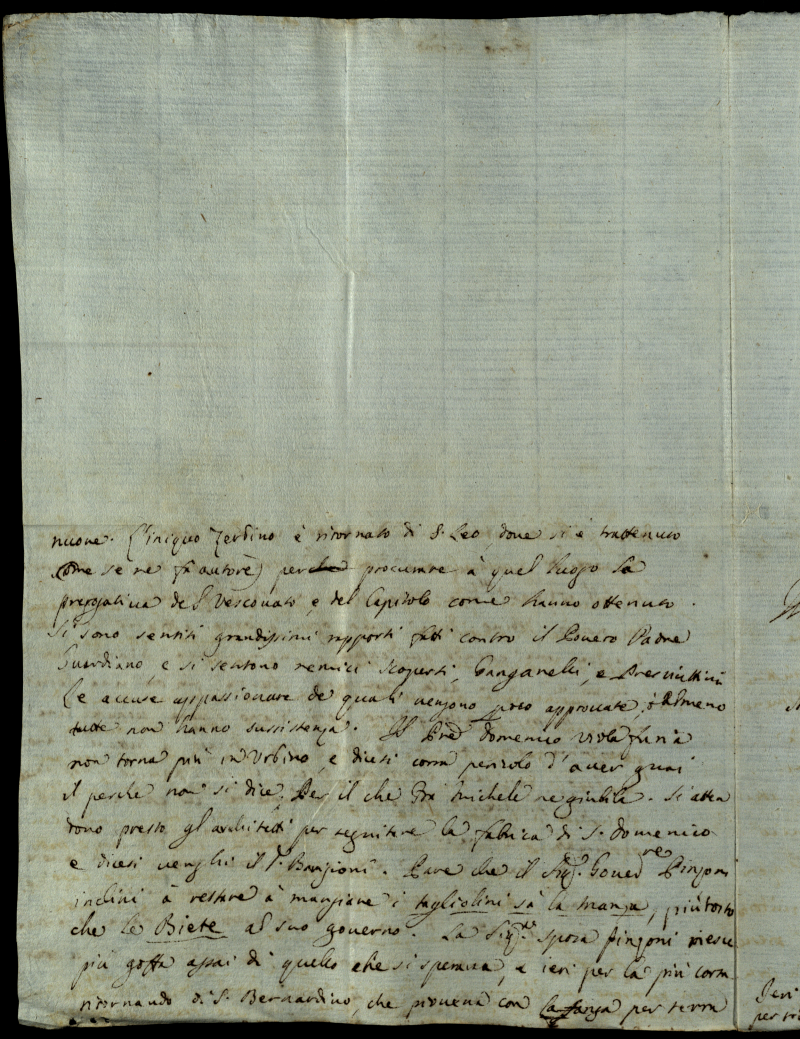 nuove. L'iniquo Zerbino è ritornato di S. Leo dove si è trattenuto
(come se ne fa autore) per procurare à quel luogo la
prerogativa del Vescovato, e del Capitolo come hanno ottenuto.
Si sono sentiti grandissimi rapporti fatti contro il Povero Padre
Guardiano, e si sentono nemici scoperti, Ganganelli, e
le accuse appassionate de quali vengono poco approvate, ò almeno
tutte non hanno sussistenza. Il Pred. Domenico Viola
non torna più in Urbino, e dicesi corra pericolo d'aver guai
il perche non si dice, Per il che Frà Michele ne giubila. Si atten
dono presto gl'architetti per seguitare la fabrica di S. Domenico
e dicesi venghi il S. Barigioni. Pare che il Sig. Gover.re Pinzoni
inclini à restare à mangiare i tagliolini sà la manza, più tosto
che le Biete al suo governo. La Sig.ra sposa Pinzoni riesce
più goffa assai di quello che si sperava, e ieri per la più corta
ritornando di S. Bernardino, che pioveva con la per terra
Jeri
per